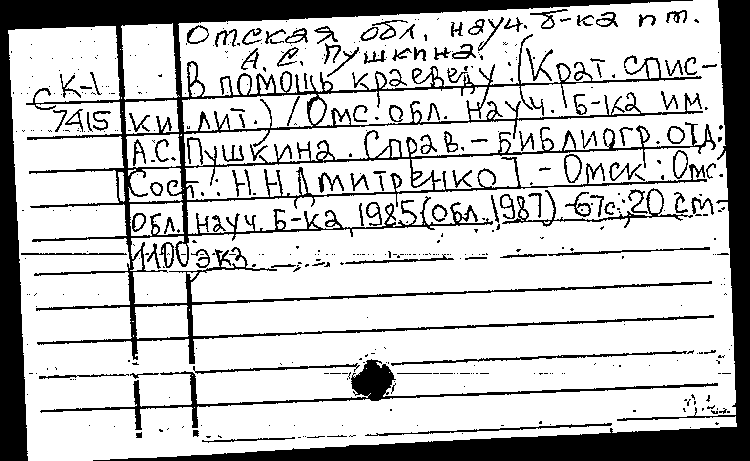 Омская обл. науч. б-ка им.
А. С. Пушкина.
К-1 В помощь краеведу: (Крат. спис-
С 7415 ки лит.) / Омс. обл. науч. б-ка им.
А.С. Пушкина. Справ.-библиогр. отд;
[Сост.: Н.Н. Дмитренко]. - Омск: Омс.
обл. науч. б-ка, 1985 (обл., 1987) - 67с.; 20 см=
1100 экз.